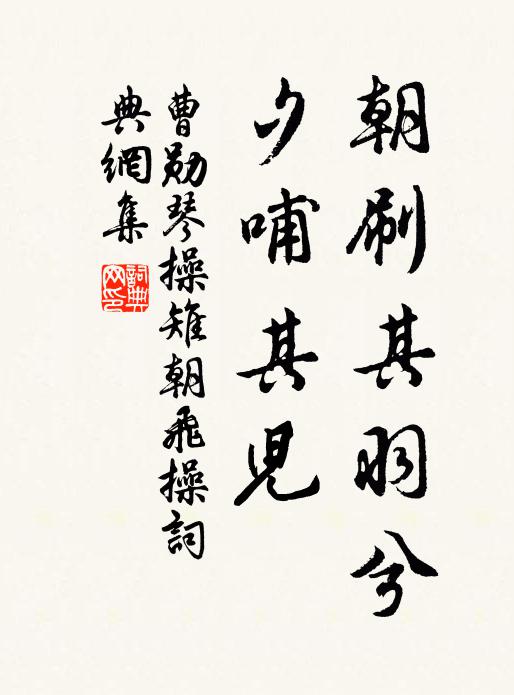 朝刷其羽兮
夕哺其児
曹勋琴操雉朝飛操詞
典網集
詞典网印